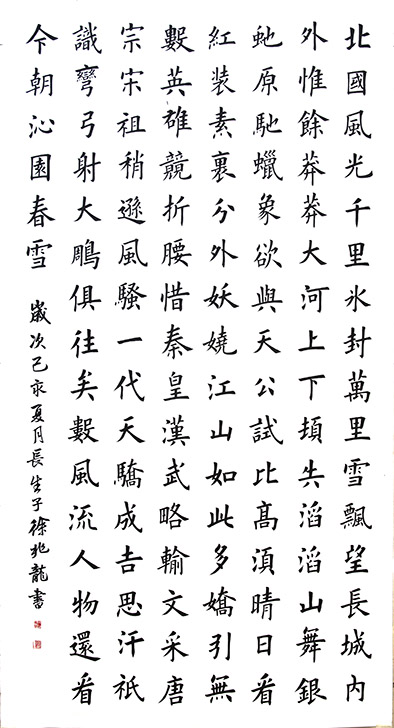 北國風光千里氷封萬里雪飄望長城内
外惟餘莽莽大河上下頓失滔滔山舞銀
虵原馳蠟象欲與天公試比高須晴日看
紅装素裹分外妖嬈江山如此多嬌引無
數英雄競折腰惜秦皇漢武略輸文采唐
宗宋祖稍遜風騷一代天驕成吉思汗衹
識彎弓射大鵰俱往矣數風流人物還看
今朝沁園春雪
歲次己亥夏月長生子徐兆龍書